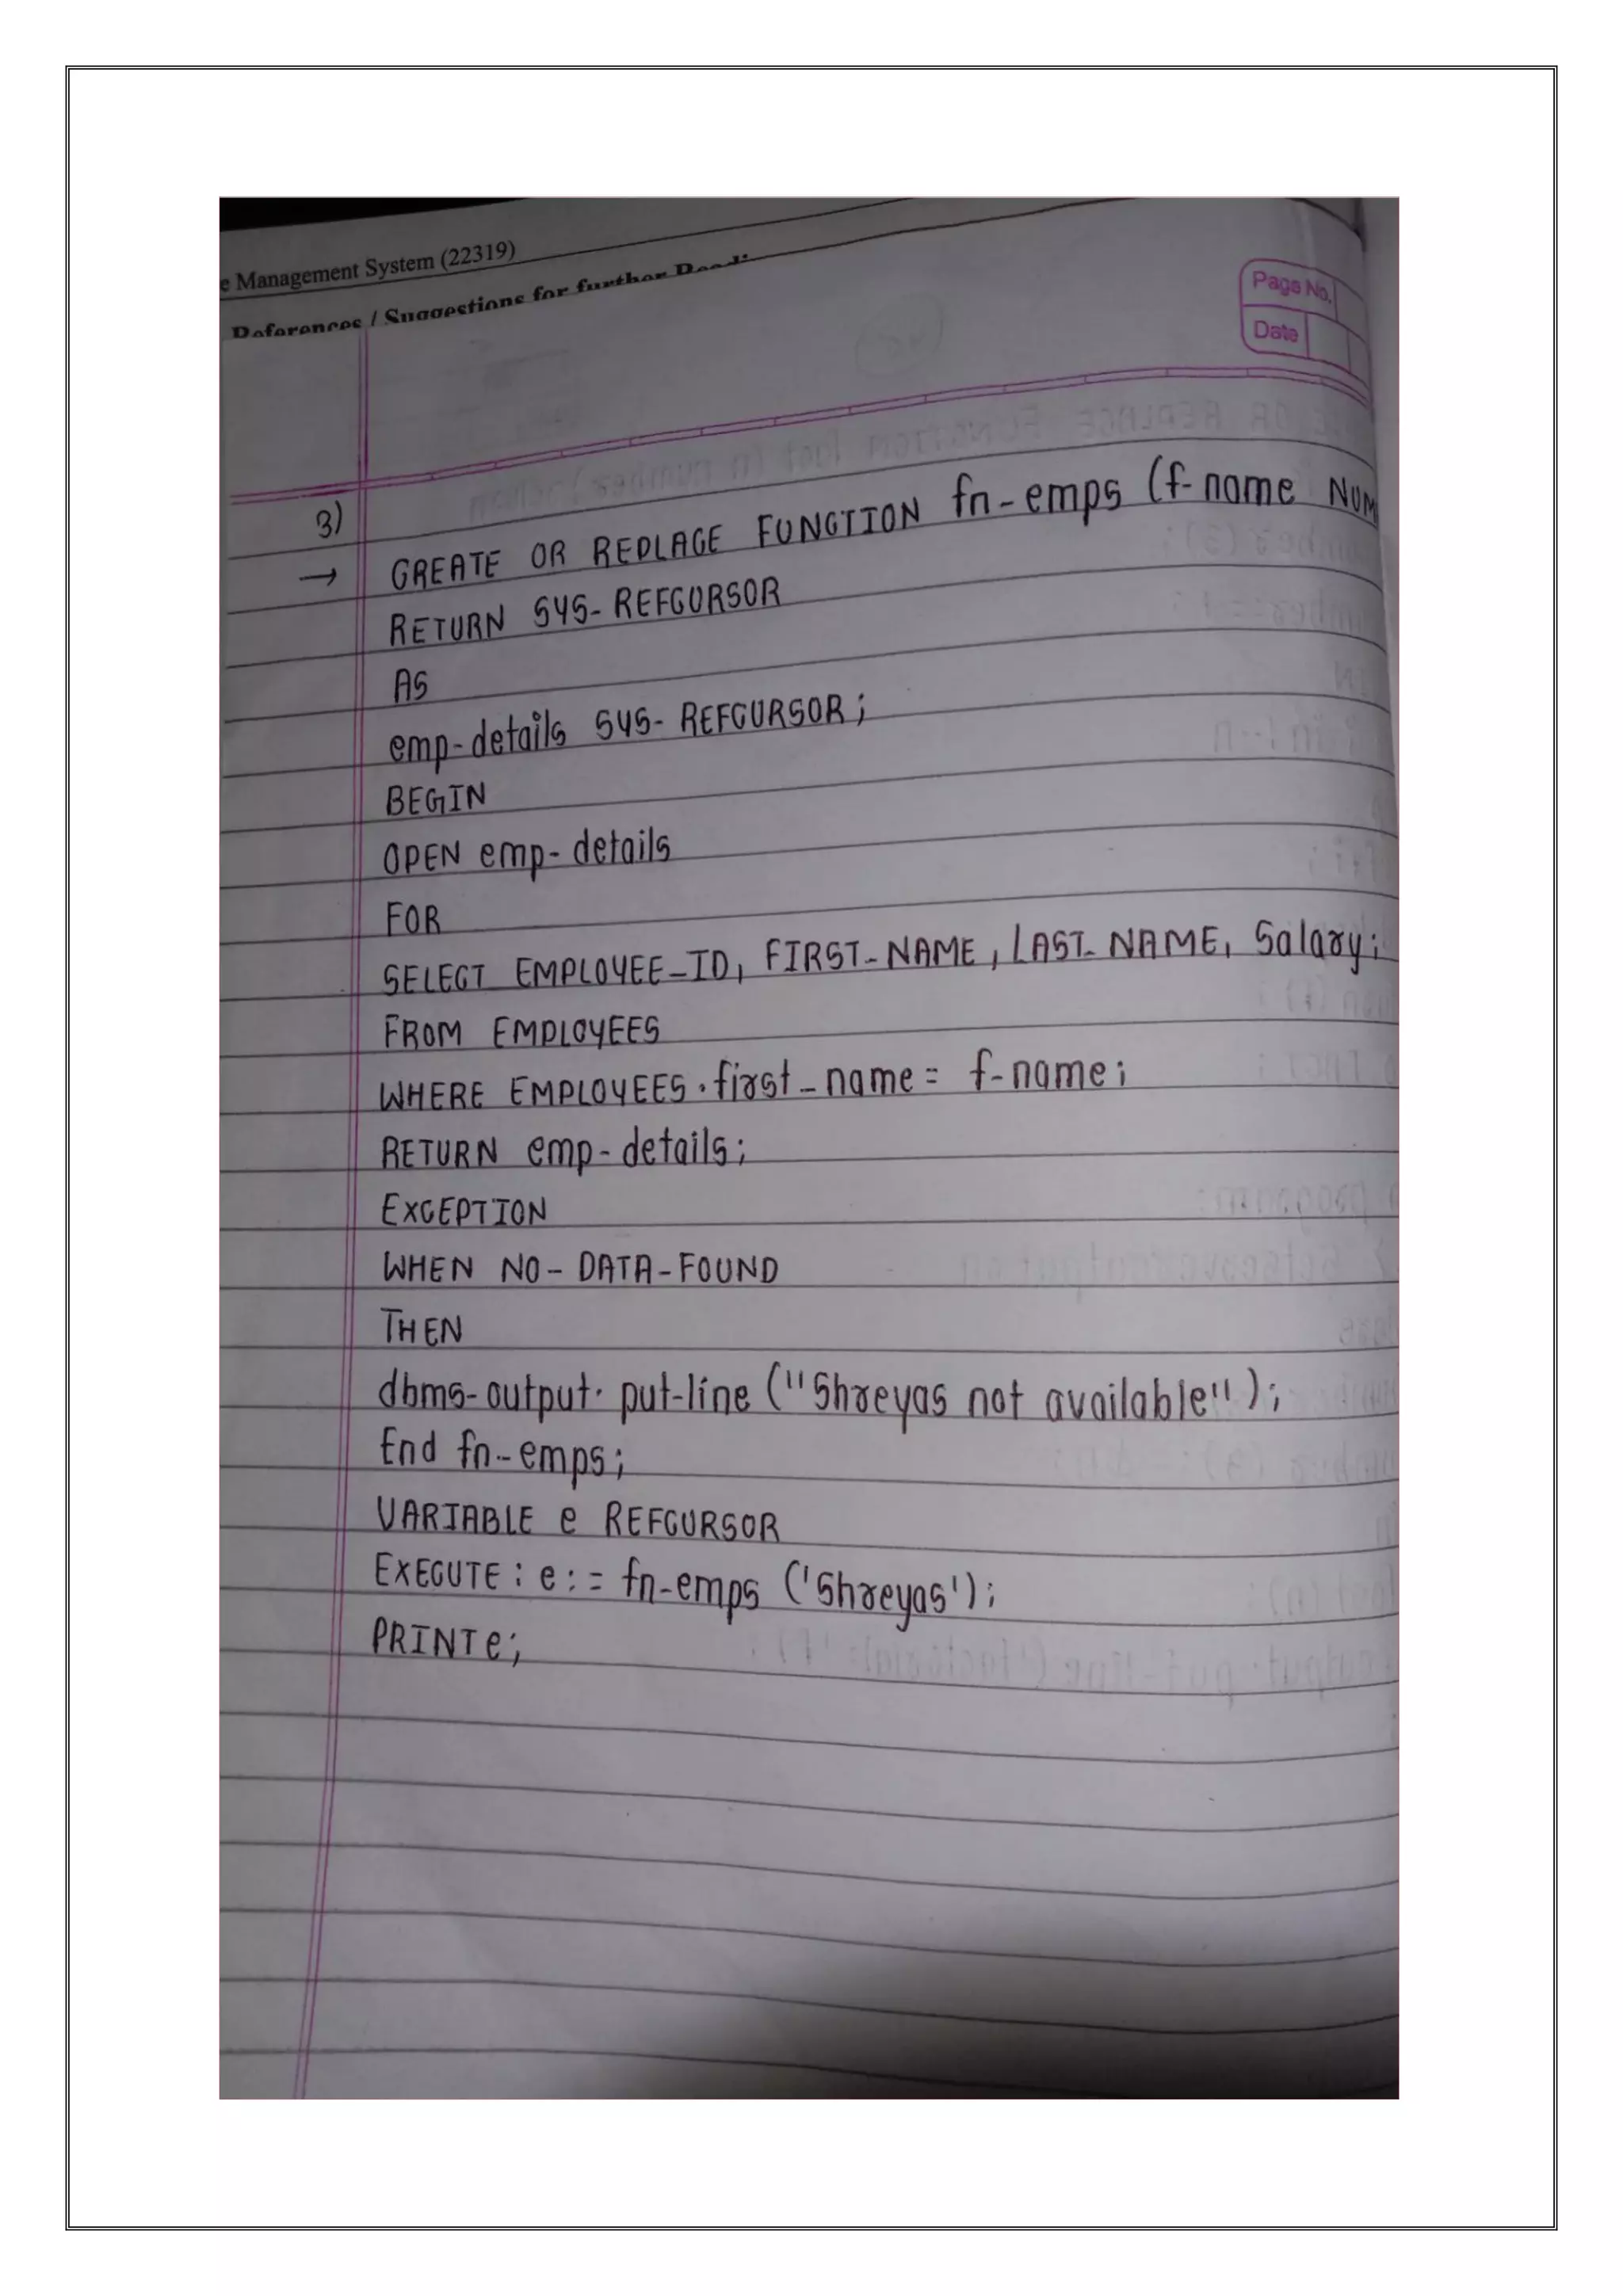 e Management System (22319)
References / Suggestions for further
Page No.
Date
3)
→ CREATE OR REPLACE FUNCTION fn-emps (f-name NUM
RETURN SYS-REFCURSOR
AS
emp-details SYS-REFCURSOR;
BEGIN
OPEN emp-details
FOR
SELECT EMPLOYEE_ID, FIRST-NAME, LAST-NAME, Salary;
FROM EMPLOYEES
WHERE EMPLOYEES.first_name = f-name;
RETURN emp-details;
EXCEPTION
WHEN NO-DATA-FOUND
THEN
dbms-output.put-line ("Shreyas not available");
End fn-emps;
VARIABLE e REFCURSOR
EXECUTE : e := fn-emps ('Shreyas');
PRINT e;